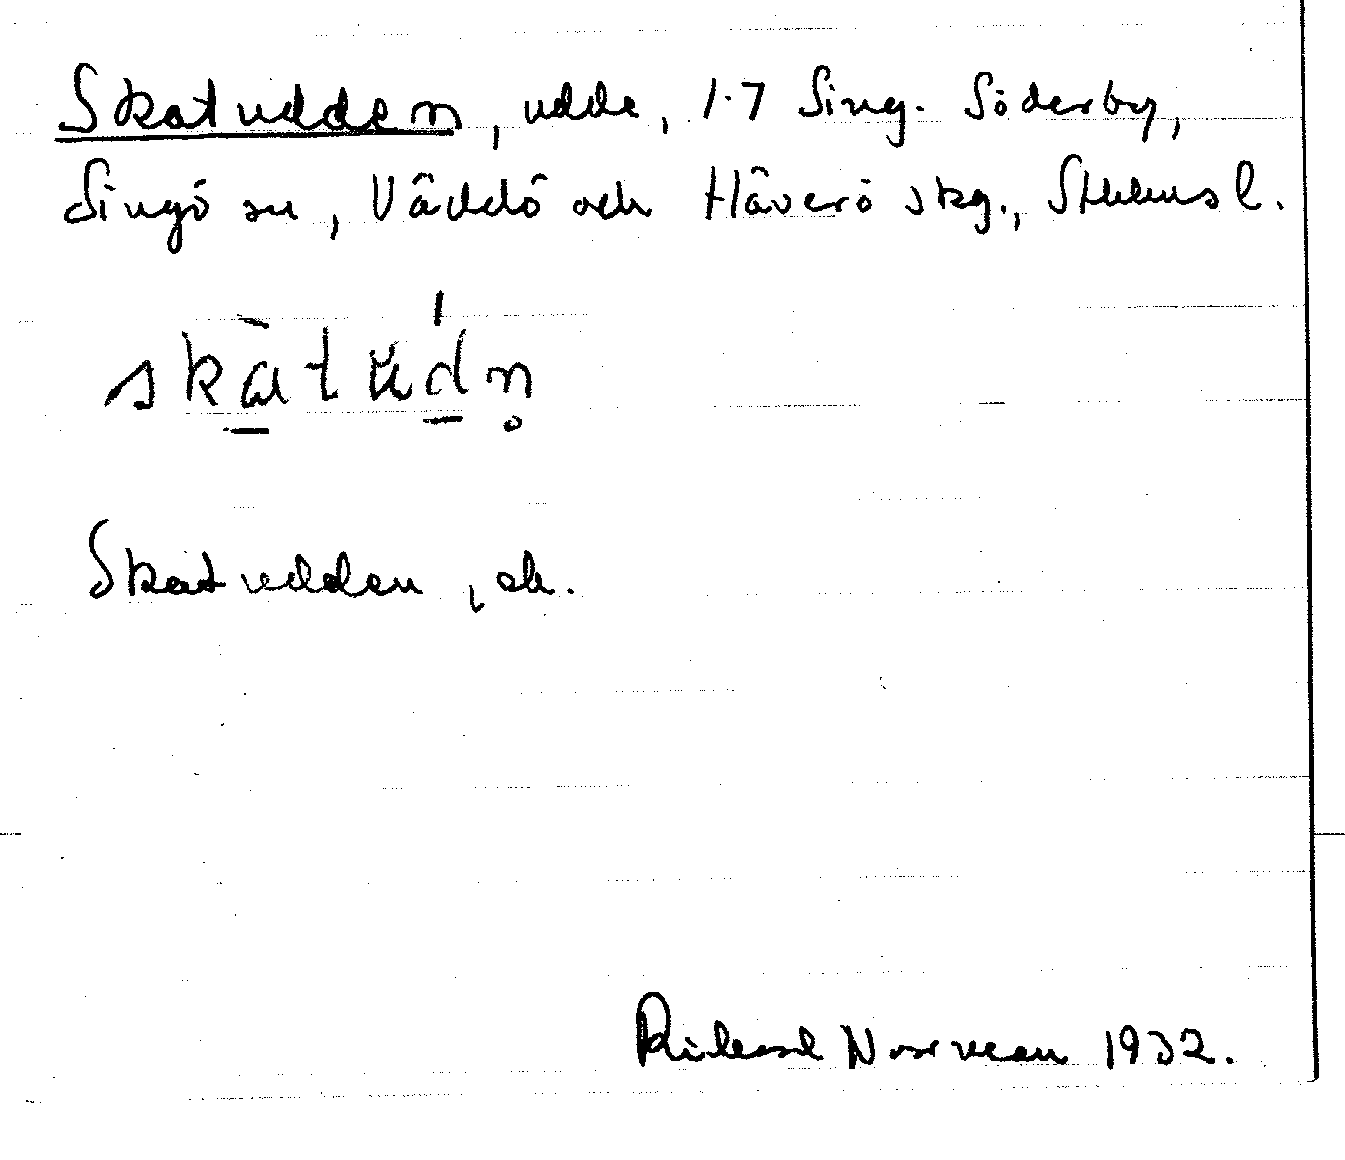 Skatudden, udde, 1·7 Sing. Söderby,
Singö sn, Väddö och Häverö skg., Sthlms l.
skàtùdn̥
Skatudden, ek.
Rickard Norrman 1932.